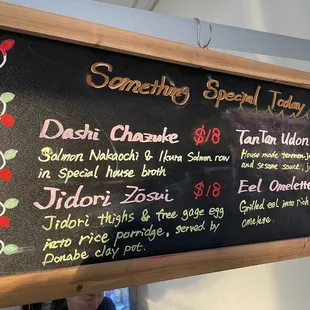 Something Special Today
Dashi Chazuke $18
Salmon Nakaochi & Ikura Salmon row
in Special house broth
Jidori Zōsui $18
Jidori thighs & free gage egg
into rice porridge, served by
Donabe clay pot.
TanTan Udon
House made
and sesame sauce,
Eel Omelette
Grilled eel into rich
omelette.